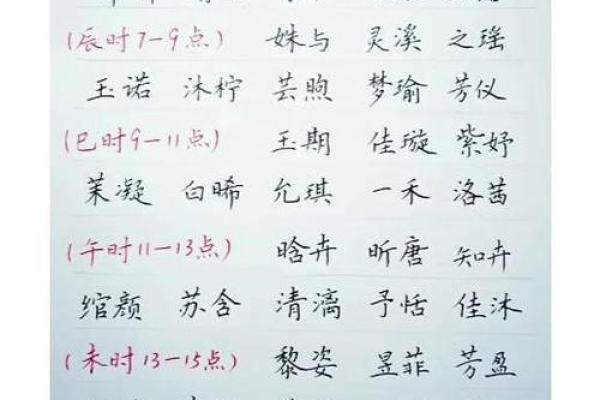 (辰时7-9点) 姝与 灵溪 之瑶
玉诺 沐柠 芸煦 梦瑜 芳仪
(巳时9-11点) 玉期 佳璇 紫妤
茉凝 白晞 允琪 一禾 洛茜
(午时11-13点) 晗卉 昕唐 知卉
绾颜 苏含 清漓 予恬 佳沐
(未时13-15点) 黎姿 昱菲 芳盈